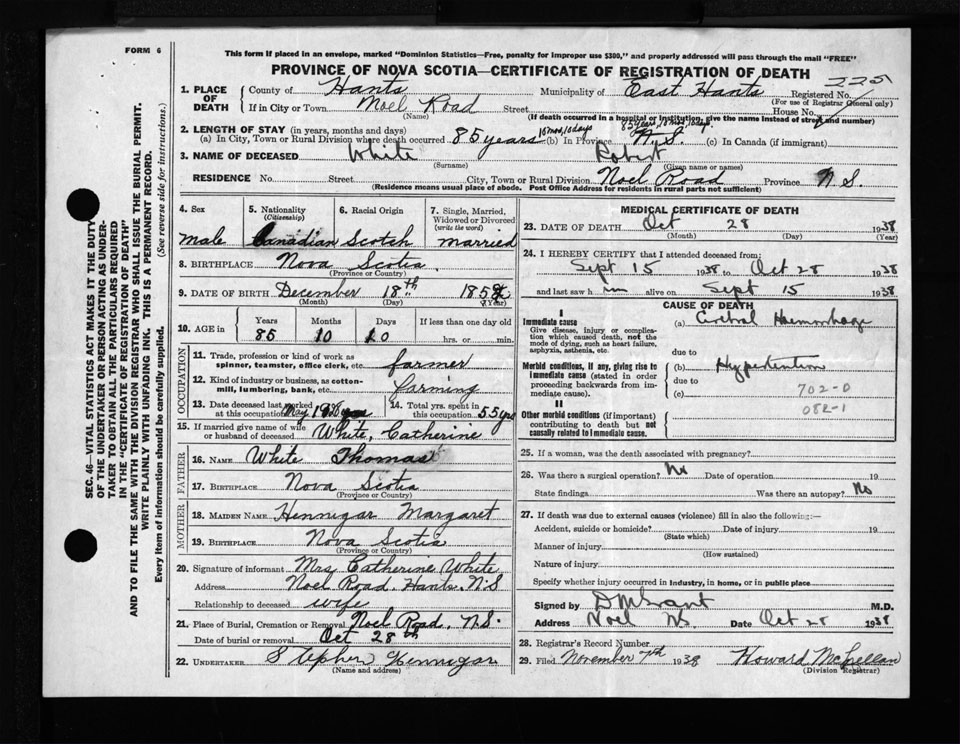 FORM 6
This form if placed in an envelope, marked "Dominion Statistics—Free, penalty for improper use $300," and properly addressed will pass through the mail "FREE"
PROVINCE OF NOVA SCOTIA—CERTIFICATE OF REGISTRATION OF DEATH
SEC. 46—VITAL STATISTICS ACT MAKES IT THE DUTY
OF THE UNDERTAKER OR PERSON ACTING AS UNDER-
TAKER TO OBTAIN ALL THE PARTICULARS REQUIRED
IN THE "CERTIFICATE OF REGISTRATION OF DEATH"
AND TO FILE THE SAME WITH THE DIVISION REGISTRAR WHO SHALL ISSUE THE BURIAL PERMIT.
WRITE PLAINLY WITH UNFADING INK. THIS IS A PERMANENT RECORD.
Every item of information should be carefully supplied. (See reverse side for instructions.)
1. PLACE OF DEATH
County of Hants Municipality of East Hants Registered No. 225
(For use of Registrar General only)
If in City or Town Noel Road Street House No.
(Name) (If death occurred in a hospital or institution, give the name instead of street and number)
2. LENGTH OF STAY (in years, months and days)
(a) In City, Town or Rural Division where death occurred 85 years 10 mos, 10 days (b) In Province 85 years, 10 mos, 10 days N.S. (c) In Canada (if immigrant)
3. NAME OF DECEASED White Robert
(Surname) (Given name or names)
RESIDENCE No. Street City, Town or Rural Division Noel Road Province N.S.
(Residence means usual place of abode. Post Office Address for residents in rural parts not sufficient)
4. Sex
male
5. Nationality
(Citizenship)
Canadian
6. Racial Origin
Scotch
7. Single, Married,
Widowed or Divorced
(write the word)
married
8. BIRTHPLACE Nova Scotia.
(Province or Country)
9. DATE OF BIRTH December 18th 185
(Month) (Day) (Year)
10. AGE in Years Months Days If less than one day old
85 10 10 hrs. or min.
OCCUPATION
11. Trade, profession or kind of work as
spinner, teamster, office clerk, etc. farmer
12. Kind of industry or business, as cotton-
mill, lumbering, bank, etc. farming
13. Date deceased last worked
at this occupation May 1938
14. Total yrs. spent in
this occupation 55 yrs
15. If married give name of wife
or husband of deceased White, Catherine
FATHER
16. NAME White Thomas
17. BIRTHPLACE Nova Scotia
(Province or Country)
MOTHER
18. MAIDEN NAME Hennigar Margaret
19. BIRTHPLACE Nova Scotia
(Province or Country)
20. Signature of informant Mrs Catherine White
Address Noel Road Hants, N.S
Relationship to deceased wife
21. Place of Burial, Cremation or Removal Noel Road, N.S.
Date of burial or removal Oct 28th
22. UNDERTAKER Stephen Hennigar
(Name and address)
MEDICAL CERTIFICATE OF DEATH
23. DATE OF DEATH Oct 28 1938
(Month) (Day) (Year)
24. I HEREBY CERTIFY that I attended deceased from:
Sept 15 1938 to Oct 28 1938
and last saw him alive on Sept 15 1938
CAUSE OF DEATH
I
Immediate cause
Give disease, injury or complica-
tion which caused death, not the
mode of dying, such as heart failure,
asphyxia, asthenia, etc.
(a) Cerebral Haemorrhage
due to
Morbid conditions, if any, giving rise to
immediate cause (stated in order
proceeding backwards from im-
mediate cause).
(b) Hypertention
due to
(c)
702-0
082-1
II
Other morbid conditions (if important)
contributing to death but not
causally related to immediate cause.
25. If a woman, was the death associated with pregnancy?
26. Was there a surgical operation? No Date of operation 19
State findings Was there an autopsy? No
27. If death was due to external causes (violence) fill in also the following:—
Accident, suicide or homicide? Date of injury 19
(State which)
Manner of injury
(How sustained)
Nature of injury
Specify whether injury occurred in industry, in home, or in public place
Signed by M.D.
Address Noel NS Date Oct 28 1938
28. Registrar's Record Number
29. Filed November 7th 1938 Howard McLellan
(Division Registrar)